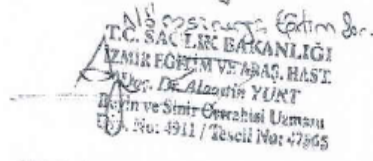 T.C. SAĞLIK BAKANLIĞI
İZMİR EĞİTİM VE ARAŞ. HAST.
Doç. Dr. Alaattin YURT
Beyin ve Sinir Cerrahisi Uzmanı
No: 4911 / Tescil No: 47865